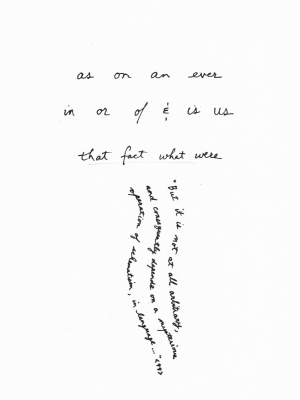 as on an ever
in or of & is us
that fact what were
"But it is not at all arbitrary,
and consequently depends on a mysterious
operation of in language..." <99>